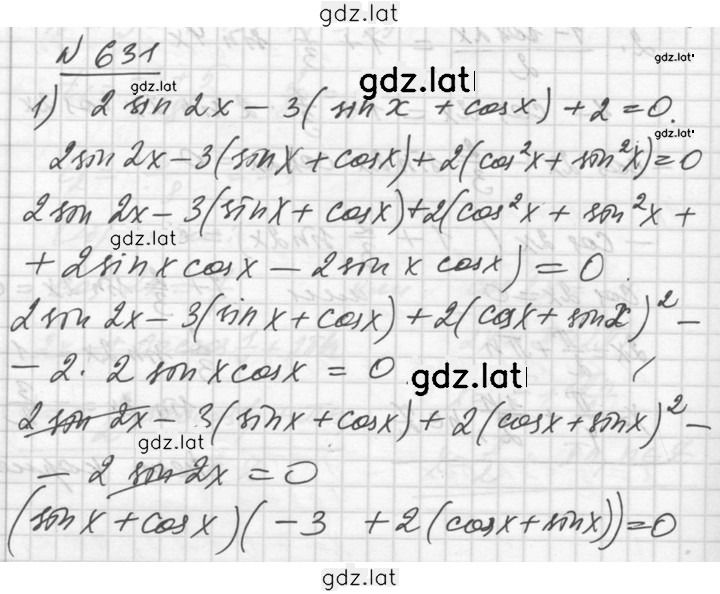 gdz.lat
N 631
gdz.lat
gdz.lat
gdz.lat
1) 2 sin 2x − 3(sin x + cos x) + 2 = 0.
gdz.lat
2 sin 2x − 3(sin x + cos x) + 2(cos²x + sin²x) = 0
2 sin 2x − 3(sin x + cos x) + 2(cos²x + sin²x +
gdz.lat
+ 2 sin x cos x − 2 sin x cos x) = 0.
2 sin 2x − 3(sin x + cos x) + 2(cos x + sin x)² −
− 2 · 2 sin x cos x = 0
gdz.lat
2 sin 2x − 3(sin x + cos x) + 2(cos x + sin x)² −
gdz.lat
− 2 sin 2x = 0
(sin x + cos x)(−3 + 2(cos x + sin x)) = 0
gdz.lat